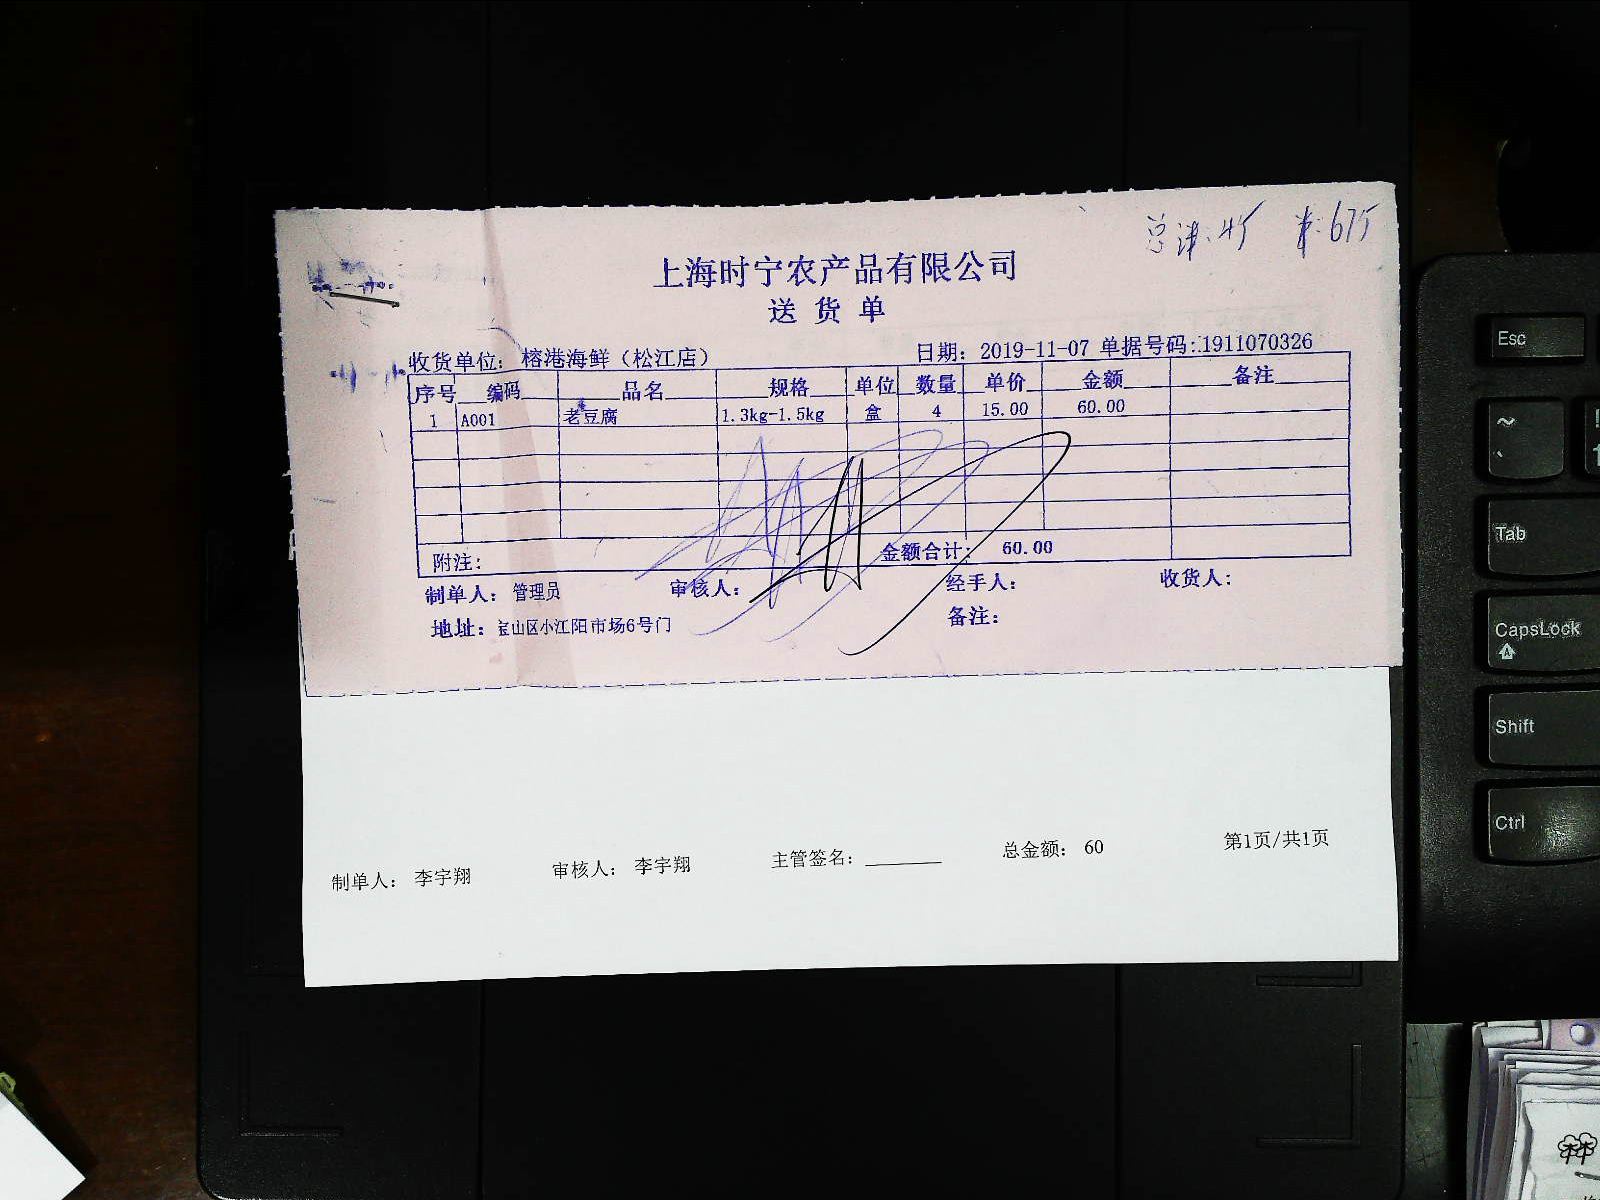 上海时宁农产品有限公司
送货单
收货单位：榕港海鲜（松江店） 日期：2019-11-07 单据号码:1911070326
序号 编码 品名 规格 单位 数量 单价 金额 备注
1 A001 老豆腐 1.3kg-1.5kg 盒 4 15.00 60.00
附注： 金额合计： 60.00
制单人：管理员 审核人： 经手人： 收货人：
地址：宝山区小江阳市场6号门 备注：
制单人： 李宇翔 审核人： 李宇翔 主管签名： 总金额： 60 第1页/共1页
Esc
~
Tab
CapsLock
Shift
Ctrl